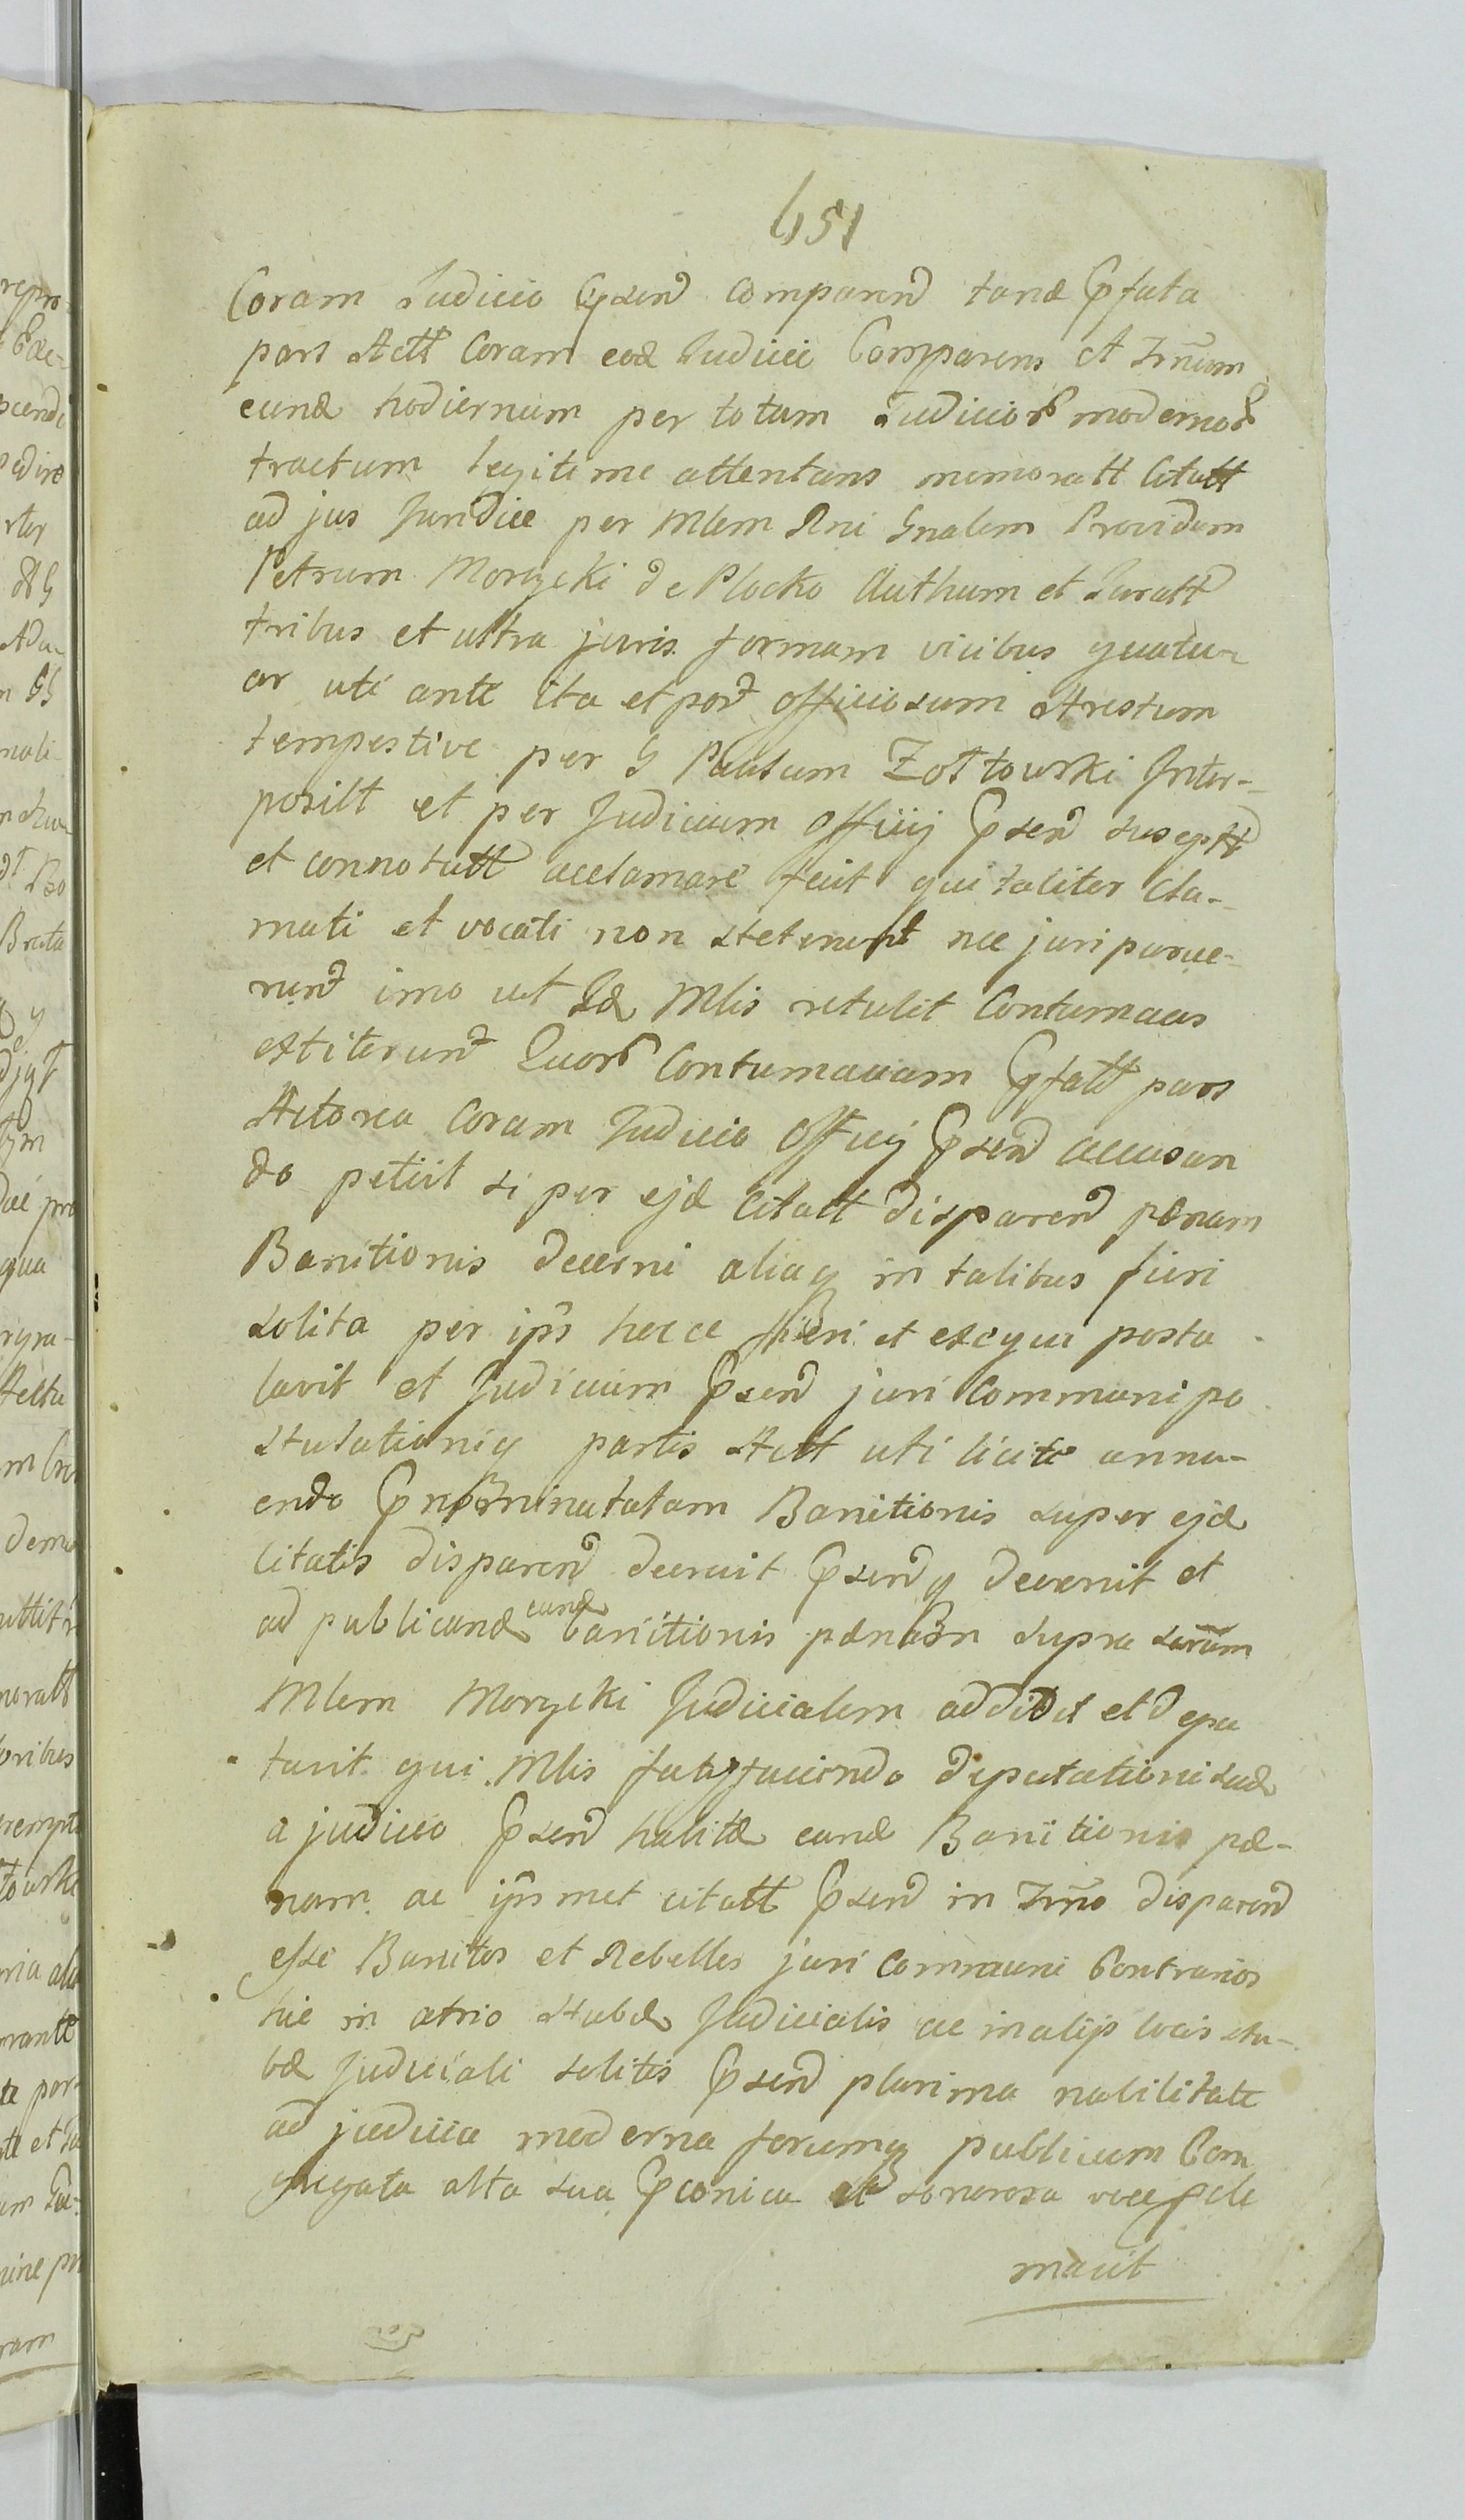 451
Coram Judicio Pnsen Comparen tand Pfata
pars Actt Coram eod Judicii Comparens et Trnum
eund hodiernum per totum Judicior modernor
tractum legitime attentans memoratt Citatt
ad jus Juridice per Mlem Rni Gnalem Providum
Petrum Morzycki de Plocko Authum et Juratt
tribus et ultra juris formam vicibus quatu-
or uti ante ita et post officiosum Arestum
tempestive per G Paulum Zołtowski Inter-
positt et per Judicium Officij Psen suscept
et connotatt acclamare fecit qui taliter cla-
mati et vocati non steterunt nec juri parue-
runt imo ut Id Mlis retulit Contumaces
extiterunt Quor Contumaciam Pfatt pars
Actorea Coram Judicio Officij Psen accusan
do petiit si per ejd Citatt disparen pœnam
Banitionis decerni aliaq in talibus fieri
solita per ips hocce fieri et exequi postu
lavit et Judicium Psen juri Communi po
stulationiq partis Actt uti licite annu-
endo Pnominatatam Banitionis super ejd
Citatis disparen decrevit Psenq decernit et
ad publicand eand Banitionis pœnam supra scrium
Mlem Morzycki Judicialem addidit et depu
tavit qui Mlis satisfaciendo deputationi suæ
a judicio Psen habitæ eand Banitionis pœ-
nam ac ipsmet citatt Psen in Trno disparen
esse Banitos et Rebelles juri Communi Contrarios
hic in atrio stubæ Judicialis ac in alijs locis stu-
bæ Judiciali solitis Psen plurima nobilitate
ad judicia moderna forumq publicum Con
gregata alta sua Pconica et sonorosa voce pcla
mavit